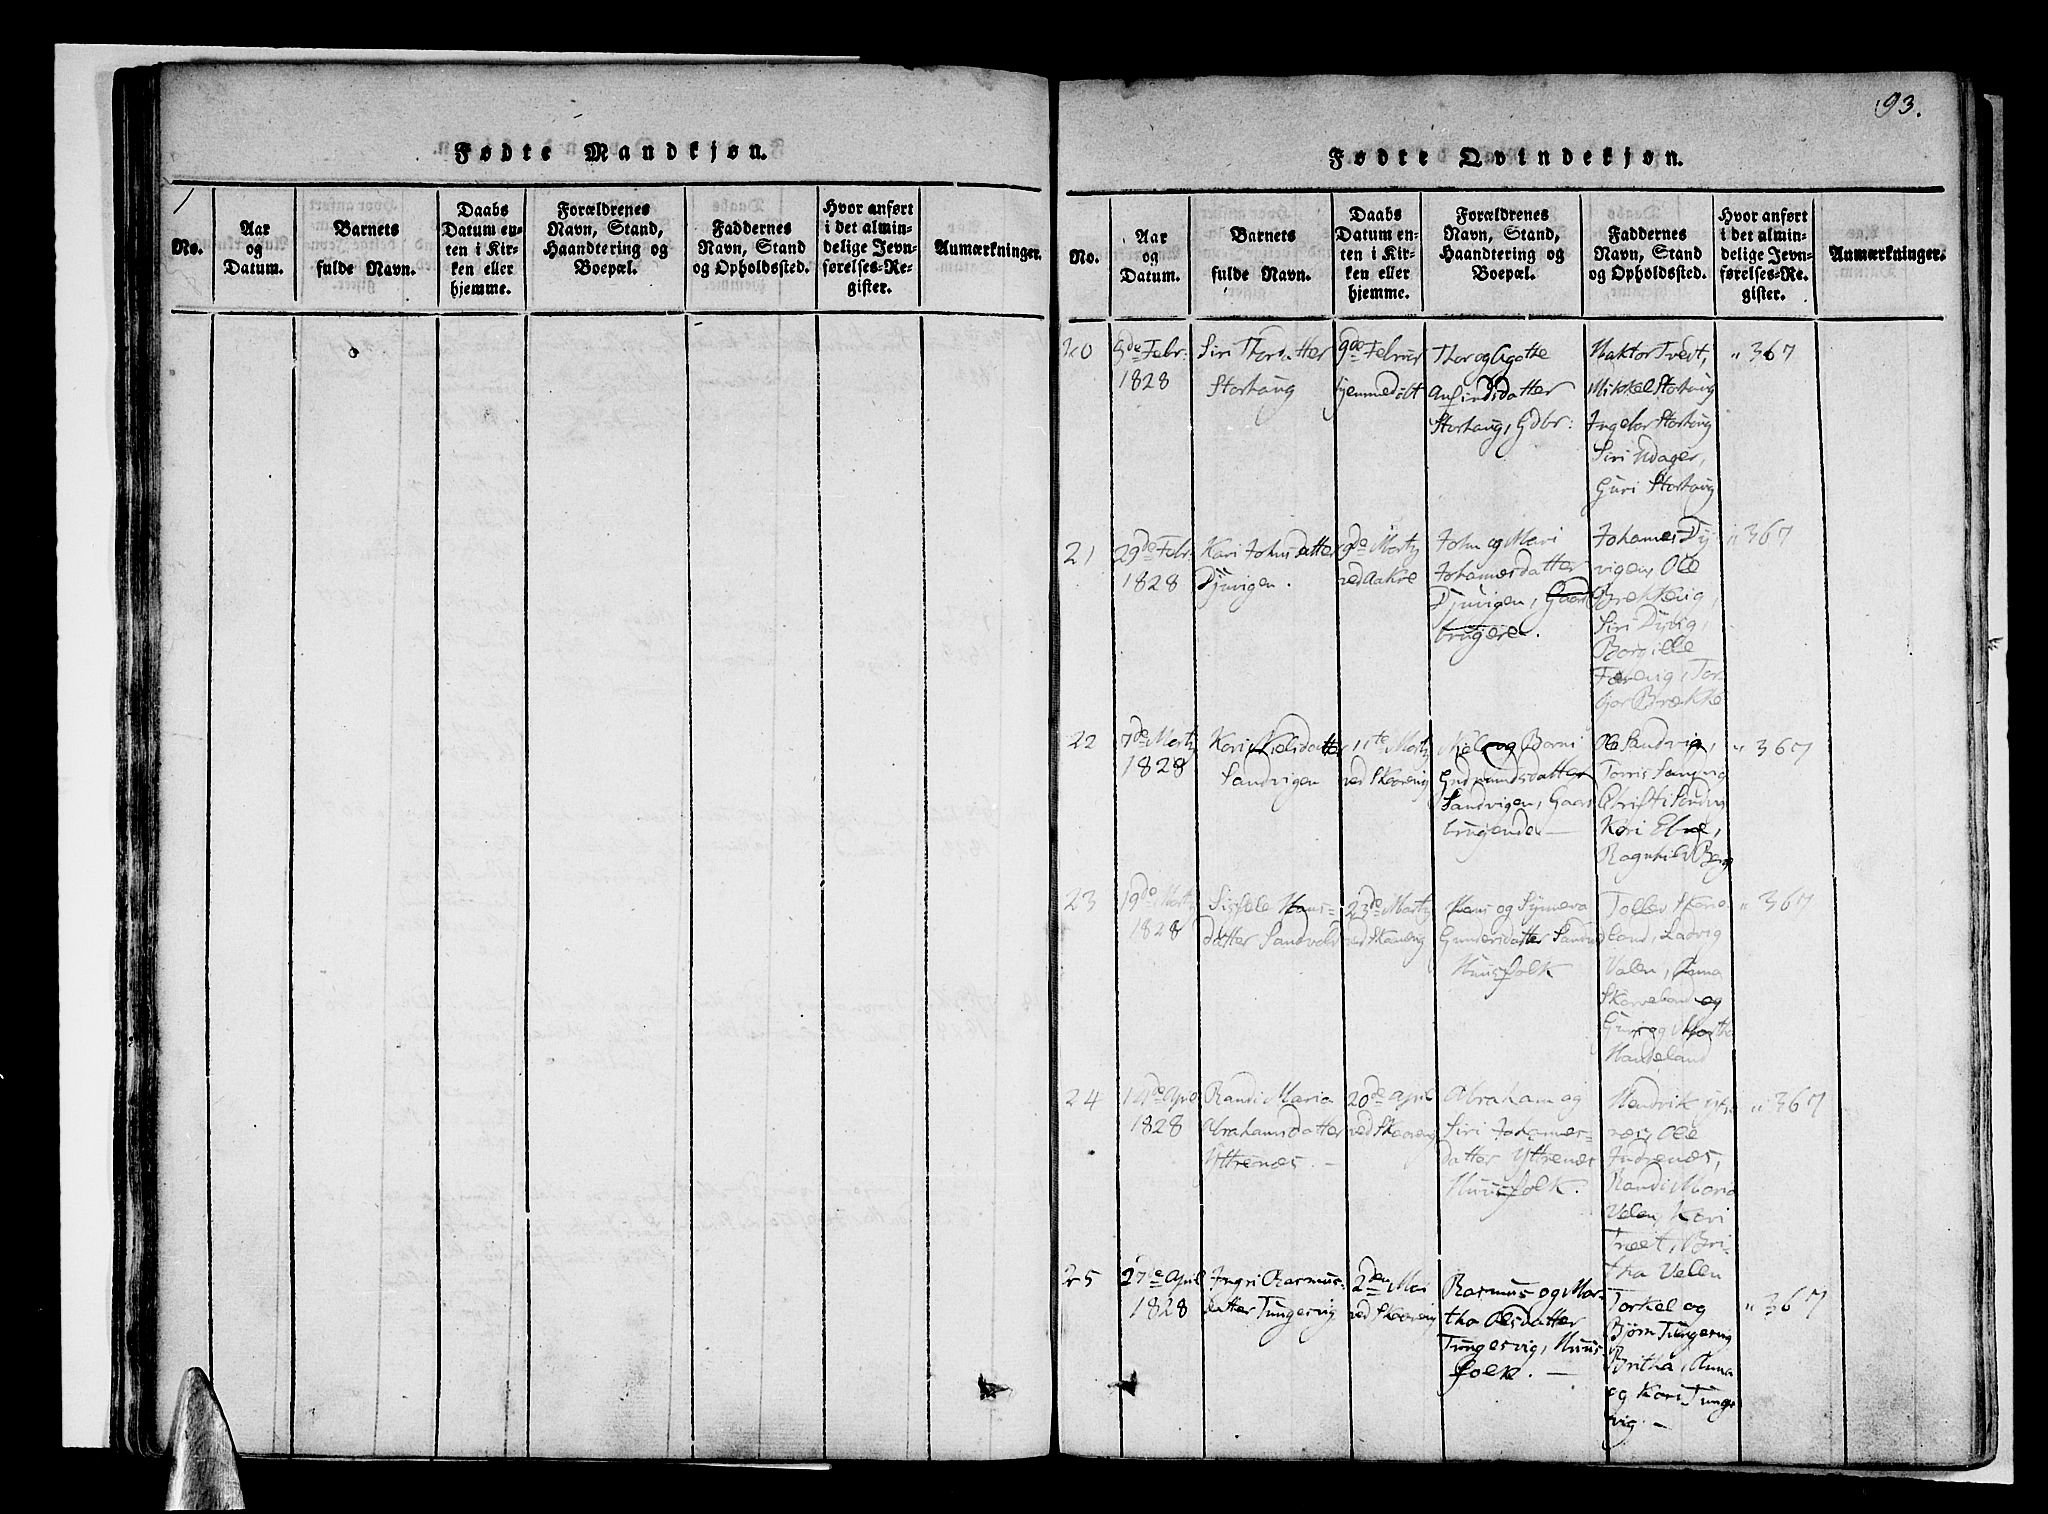 93.
Fødte Mandkjøn.
No.
Aar
og
Datum.
Barnets
fulde Navn.
Daabs
Datum en-
ten i Kir-
ken eller
hjemme.
Forældrenes
Navn, Stand,
Haandtering og
Boepæl.
Faddernes
Navn, Stand
og Opholdssted.
Hvor anført
i det almin-
delige Jevn-
førelses-Re-
gister.
Anmærkninger.
Fødte Qvindekjøn.
No.
Aar
og
Datum.
Barnets
fulde Navn.
Daabs
Datum en-
ten i Kir-
ken eller
hjemme.
Forældrenes
Navn, Stand,
Haandtering og
Boepæl.
Faddernes
Navn, Stand
og Opholdssted.
Hvor anført
i det almin-
delige Jevn-
førelses-Re-
gister.
Anmærkninger.
20
de Febr:
1828
Siri Thordatter
Storhoug
9de Februar
hjemmedøbt
Thor og Agathe
Anfindsdatter
Storhoug, Gdbr:
Tvedt,
Mikkel Storhoug
Ingebor Storhoug
Siri
Guri Storhoug
" 367
21
29de Febr.
1828
Kari Johnsdatter
Djuvigen.
9de Martz
ved Aakre
John og Mari
Johannesdatter
Djuvigen, Gaard
brugere.
Johannes Dy
vigen, Ole
Brekkevig,
Siri Dyvig,
Tor
gior Brække
" 367
22
7de Martz
1828
Kari Nielsdatter
Sandvigen
11te Martz
ved Skaarevig
Niels og Barni
Gudmundsdatter
Sandvigen, Gaard
brugende. —
Ole Sandvig,
Torris Sandvig
Christi Sandvig
Kari
Ragnhild Berge
" 367
23
19de Martz
1828
Sissele Hans-
datter Sandvold
23de Martz
ved Skaarevig
Hans og Synneva
Gundersdatter
Huusfolk
Tollev Skarve
land, Ladvig
Valen, Anna
Skarveland og
Guri og Martha
Handeland
" 367
24
14de April
1828
Randi Maria
Abrahamsdatter
Yttrenæs. —
20de April
ved Skaarevig
Abraham og
Siri Johannes-
datter Yttrenæs
Huusfolk.
Hendrik Yt
næs, Ole
Indrenæs,
Randi Maria
Valen, Kari
Træet, Bri-
tha Valen
" 367
25
27de April
1828
Ingri Rasmus-
datter Tungesvig
2den Mai
ved Skaarevig
Rasmus og Mar-
tha Olsdatter
Tungesvig, Huus-
folk. —
Torkel og
Bjørn Tungesvig
Britha, Anna
og Kari Tunges
vig. —
" 367